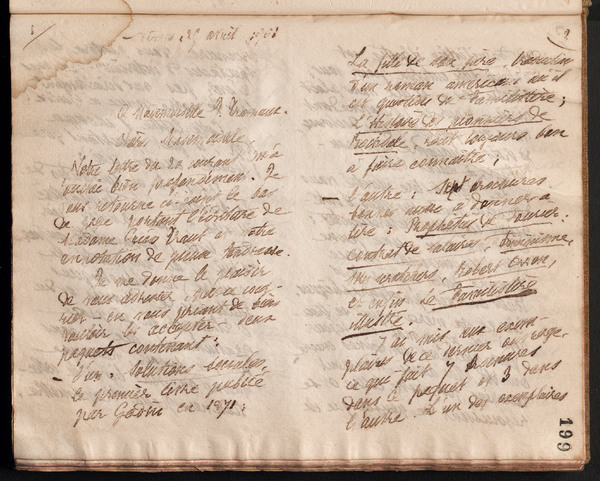 1
29 avril 1901
A Mademoiselle
Mademoiselle,
Votre lettre du 20 courant m'a
bien profondément. Je
vous retourne ci-joint le bas
de page portant l'écriture de
Madame et votre
annotation de pieuse tendresse.
Je me donne le plaisir
de vous adresser, par ce cour-
rier en vous priant de bien
vouloir les accepter deux
paquets contenant:
– l'un: Solutions sociales,
le premier livre publié
par Godin en 1871;
2
La fille de son père, traduction
d'un roman américain où il
est question du Familistère;
L'histoire des pionniers de
Rochdale, sont toujours bon
à faire connaître;
– l'autre: Sept brochures
bonnes aussi à donner à
lire:
contrat de salaire,
Robert Owen,
et enfin Le Familistère
illustré.
J'ai mis deux exem-
plaires de ce dernier ouvrage,
ce que fait 7 brochures
dans le paquet et 3 dans
l'autre. L'un des exemplaires
199